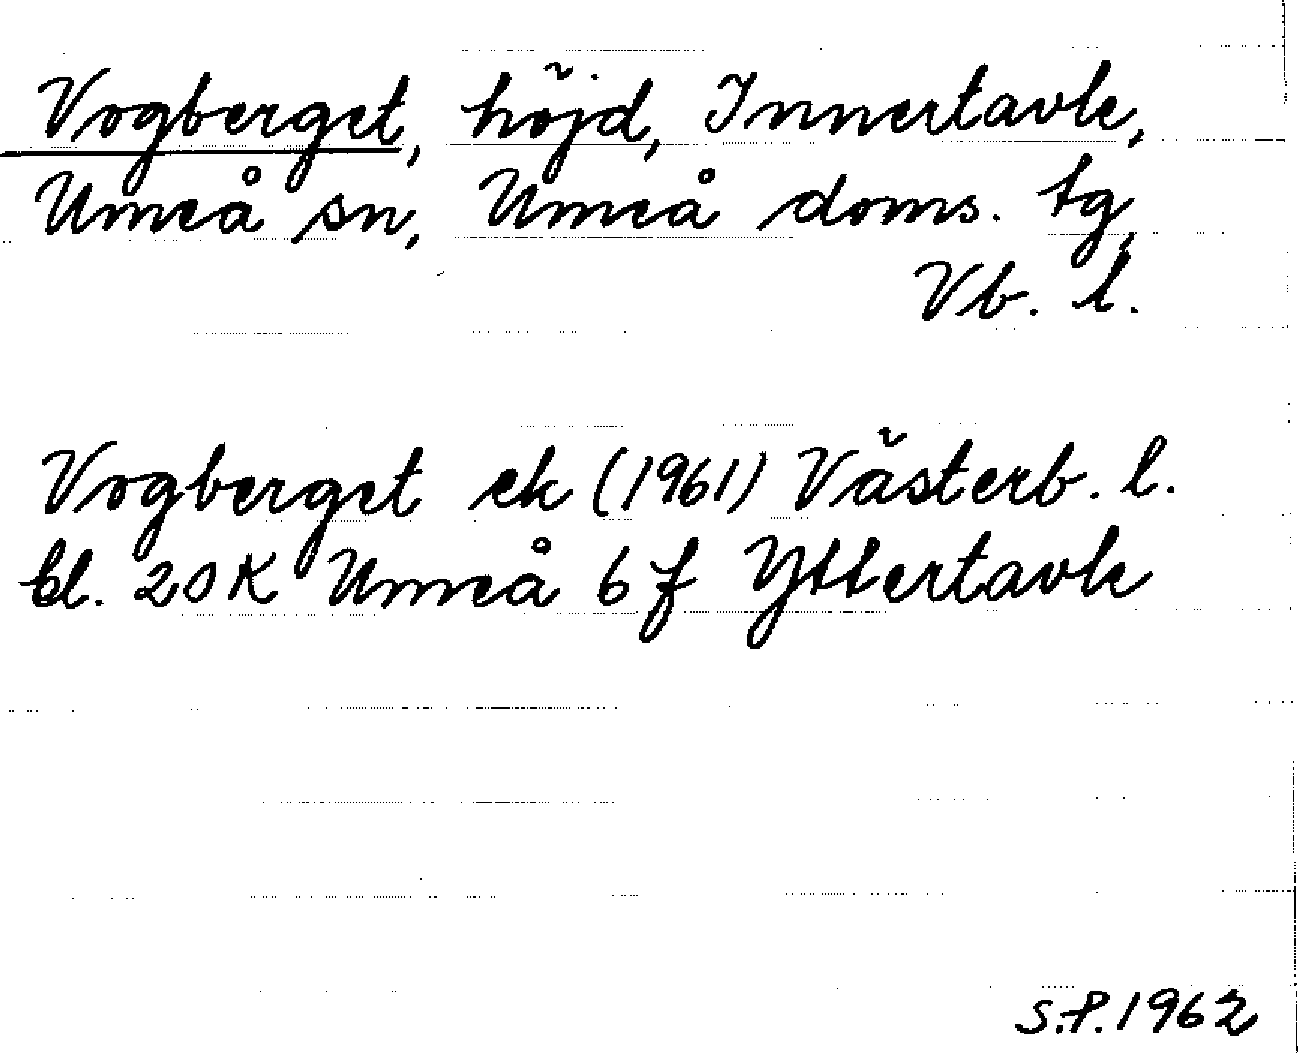 Vogberget, höjd, Innertavle,
Umeå sn, Umeå doms. tg,
Vb. l.
Vogberget ek (1961) Västerb. l.
bl. 20K Umeå 6 f Yttertavle
S.P. 1962